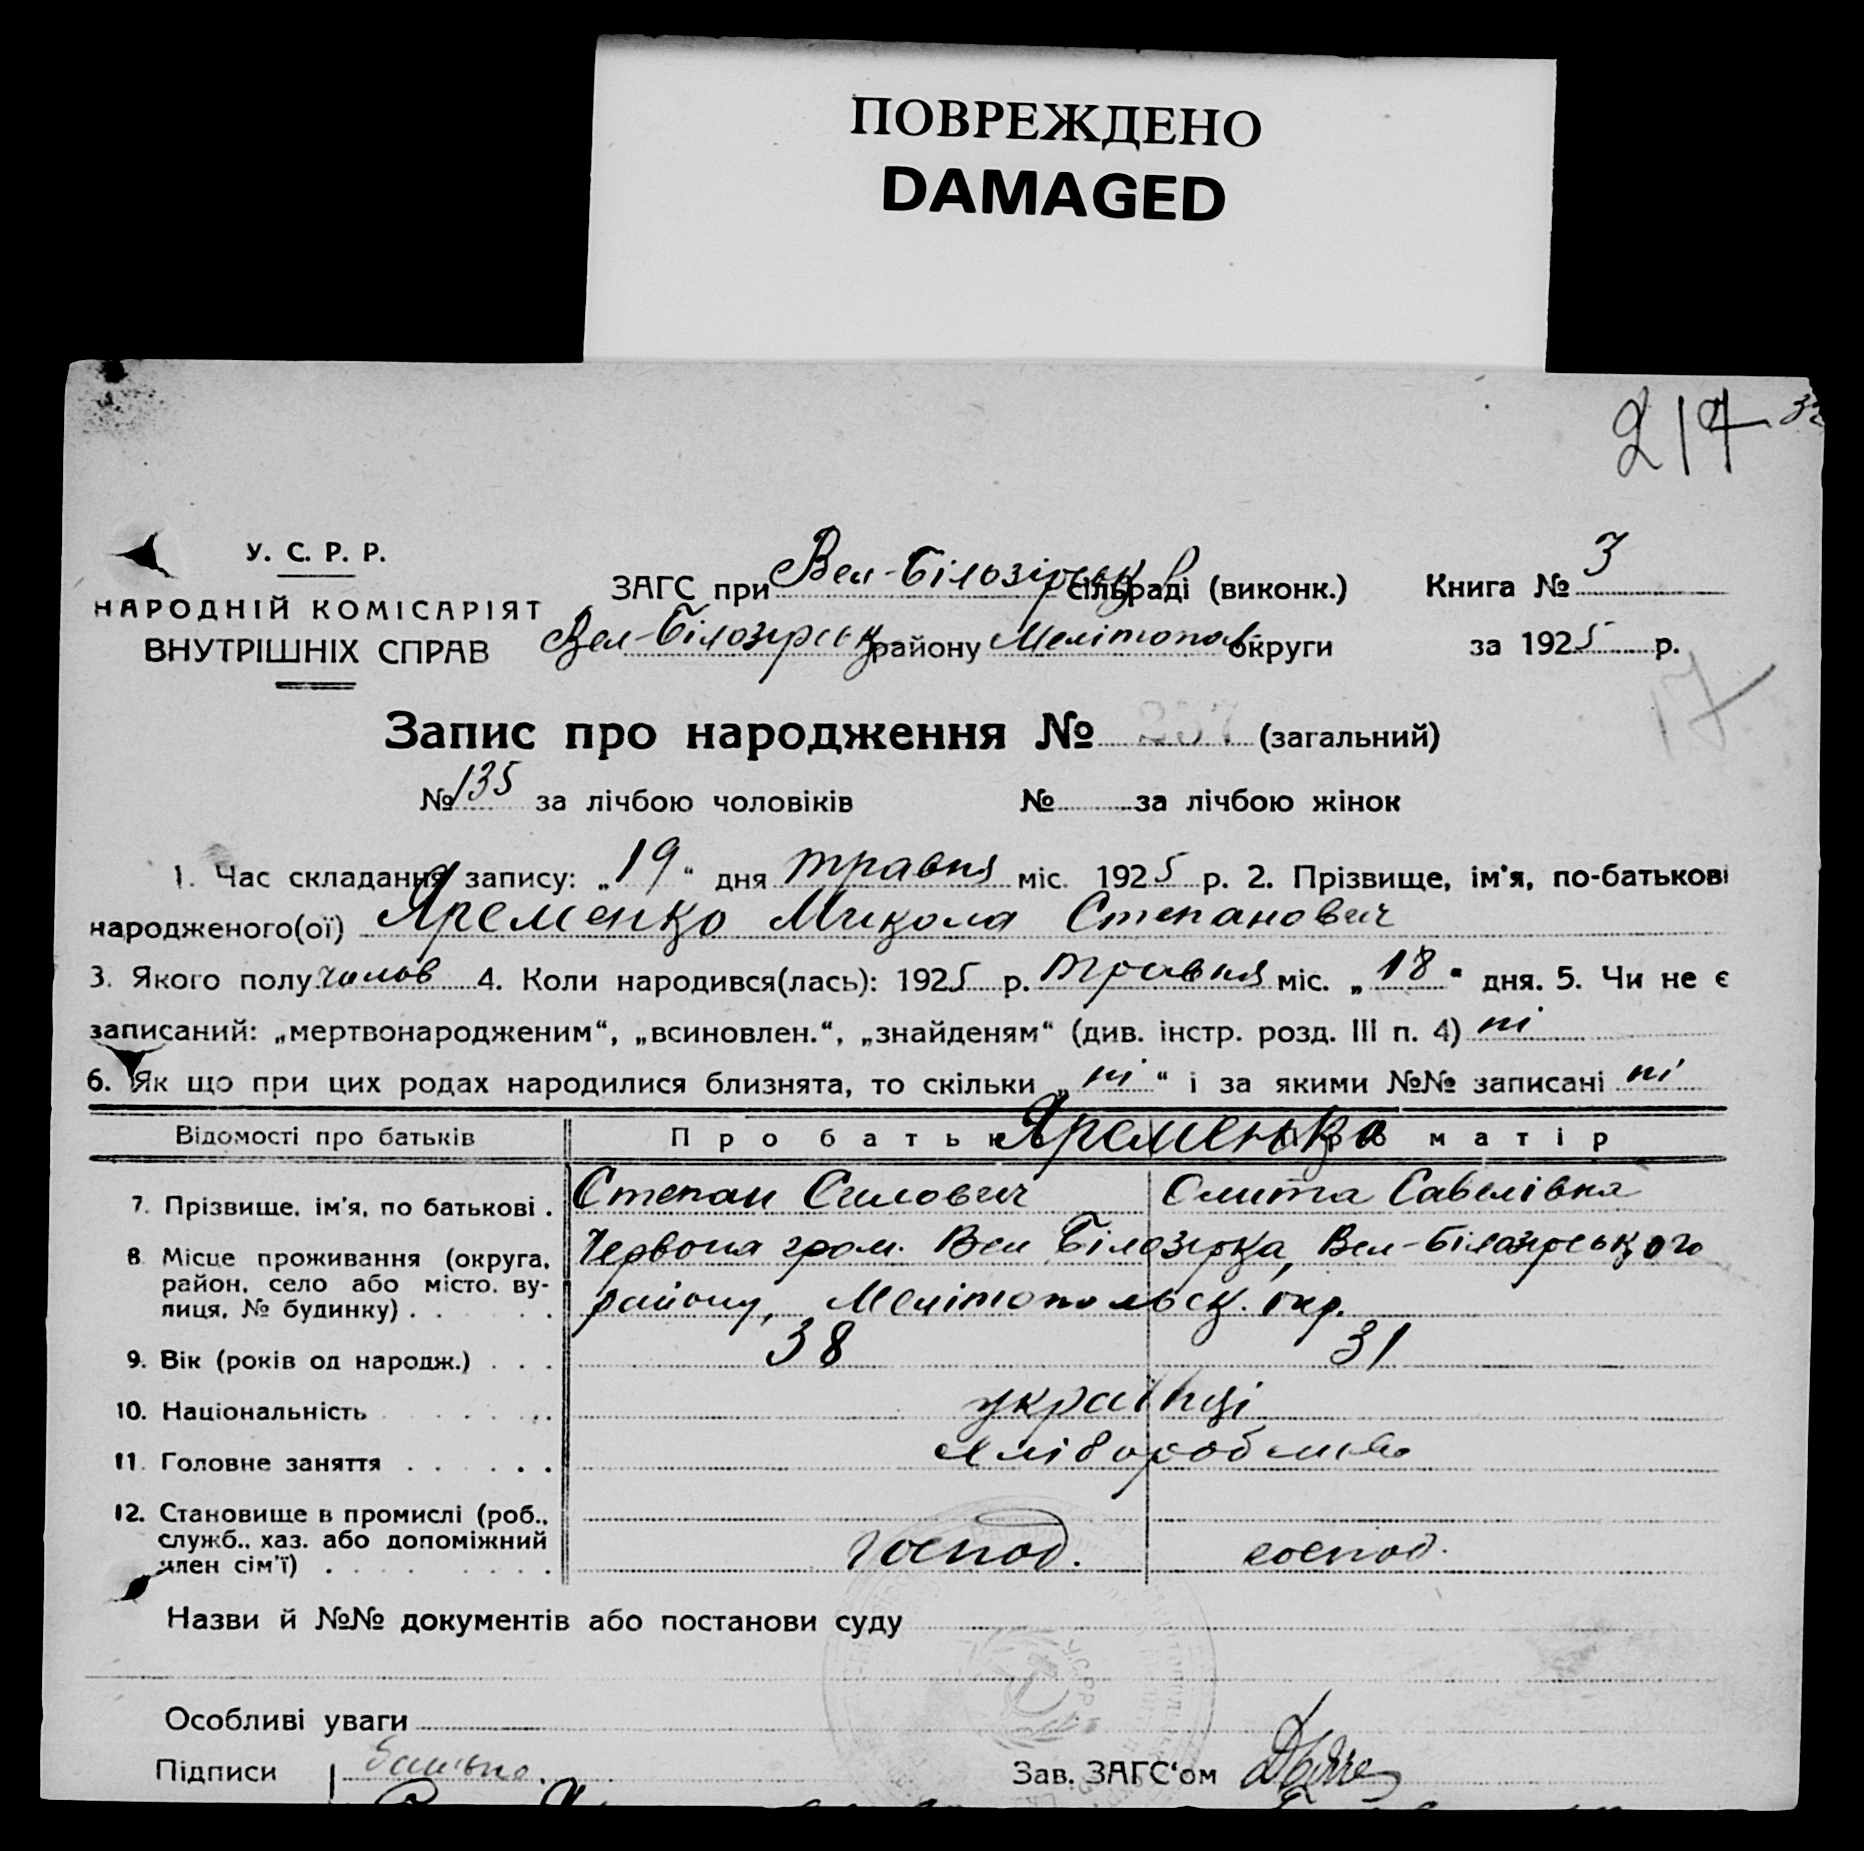 ПОВРЕЖДЕНО
DAMAGED
217
У. С. Р. Р.
НАРОДНІЙ КОМІСАРІЯТ
ВНУТРІШНІХ СПРАВ
ЗАГС при Вел-Білозірськ сільраді (виконк.) Книга № 3
Вел-Білозирськ району Мелітопол округи за 1925 р.
17
Запис про народження № 237 (загальний)
№ 135 за лічбою чоловіків № за лічбою жінок
1. Час складання запису: „19“ дня травня міс. 1925 р. 2. Прізвище, ім'я, по-батькові
народженого(ої) Яременко Микола Степанович
3. Якого полу чолов 4. Коли народився(лась): 1925 р. травня міс. „18“ дня. 5. Чи не є
записаний: „мертвонародженим“, „всиновлен.“, „знайденям“ (див. інстр. розд. III п. 4) ні
6. Як що при цих родах народилися близнята, то скільки „ні“ і за якими №№ записані ні
Відомості про батьків Про батька Яременко Про матір
7. Прізвище, ім'я, по батькові . Степан Силович Савелівна
8 Місце проживання (округа, Червона гром. Вел Білозирка, Вел-Білозирського
район, село або місто, ву-
лиця, № будинку) . . . . . району, Мелітопольськ. окр.
9. Вік (років од народж.) . . . 38 31
10. Національність . . . . . . українці
11. Головне заняття . . . . . . хліборобство
12. Становище в промислі (роб.,
служб., хаз. або допоміжний
член сім'ї) . . . . . . . . господ. господ.
Назви й №№ документів або постанови суду
УСРР
Особливі уваги
Підписи Зав. ЗАГС'ом